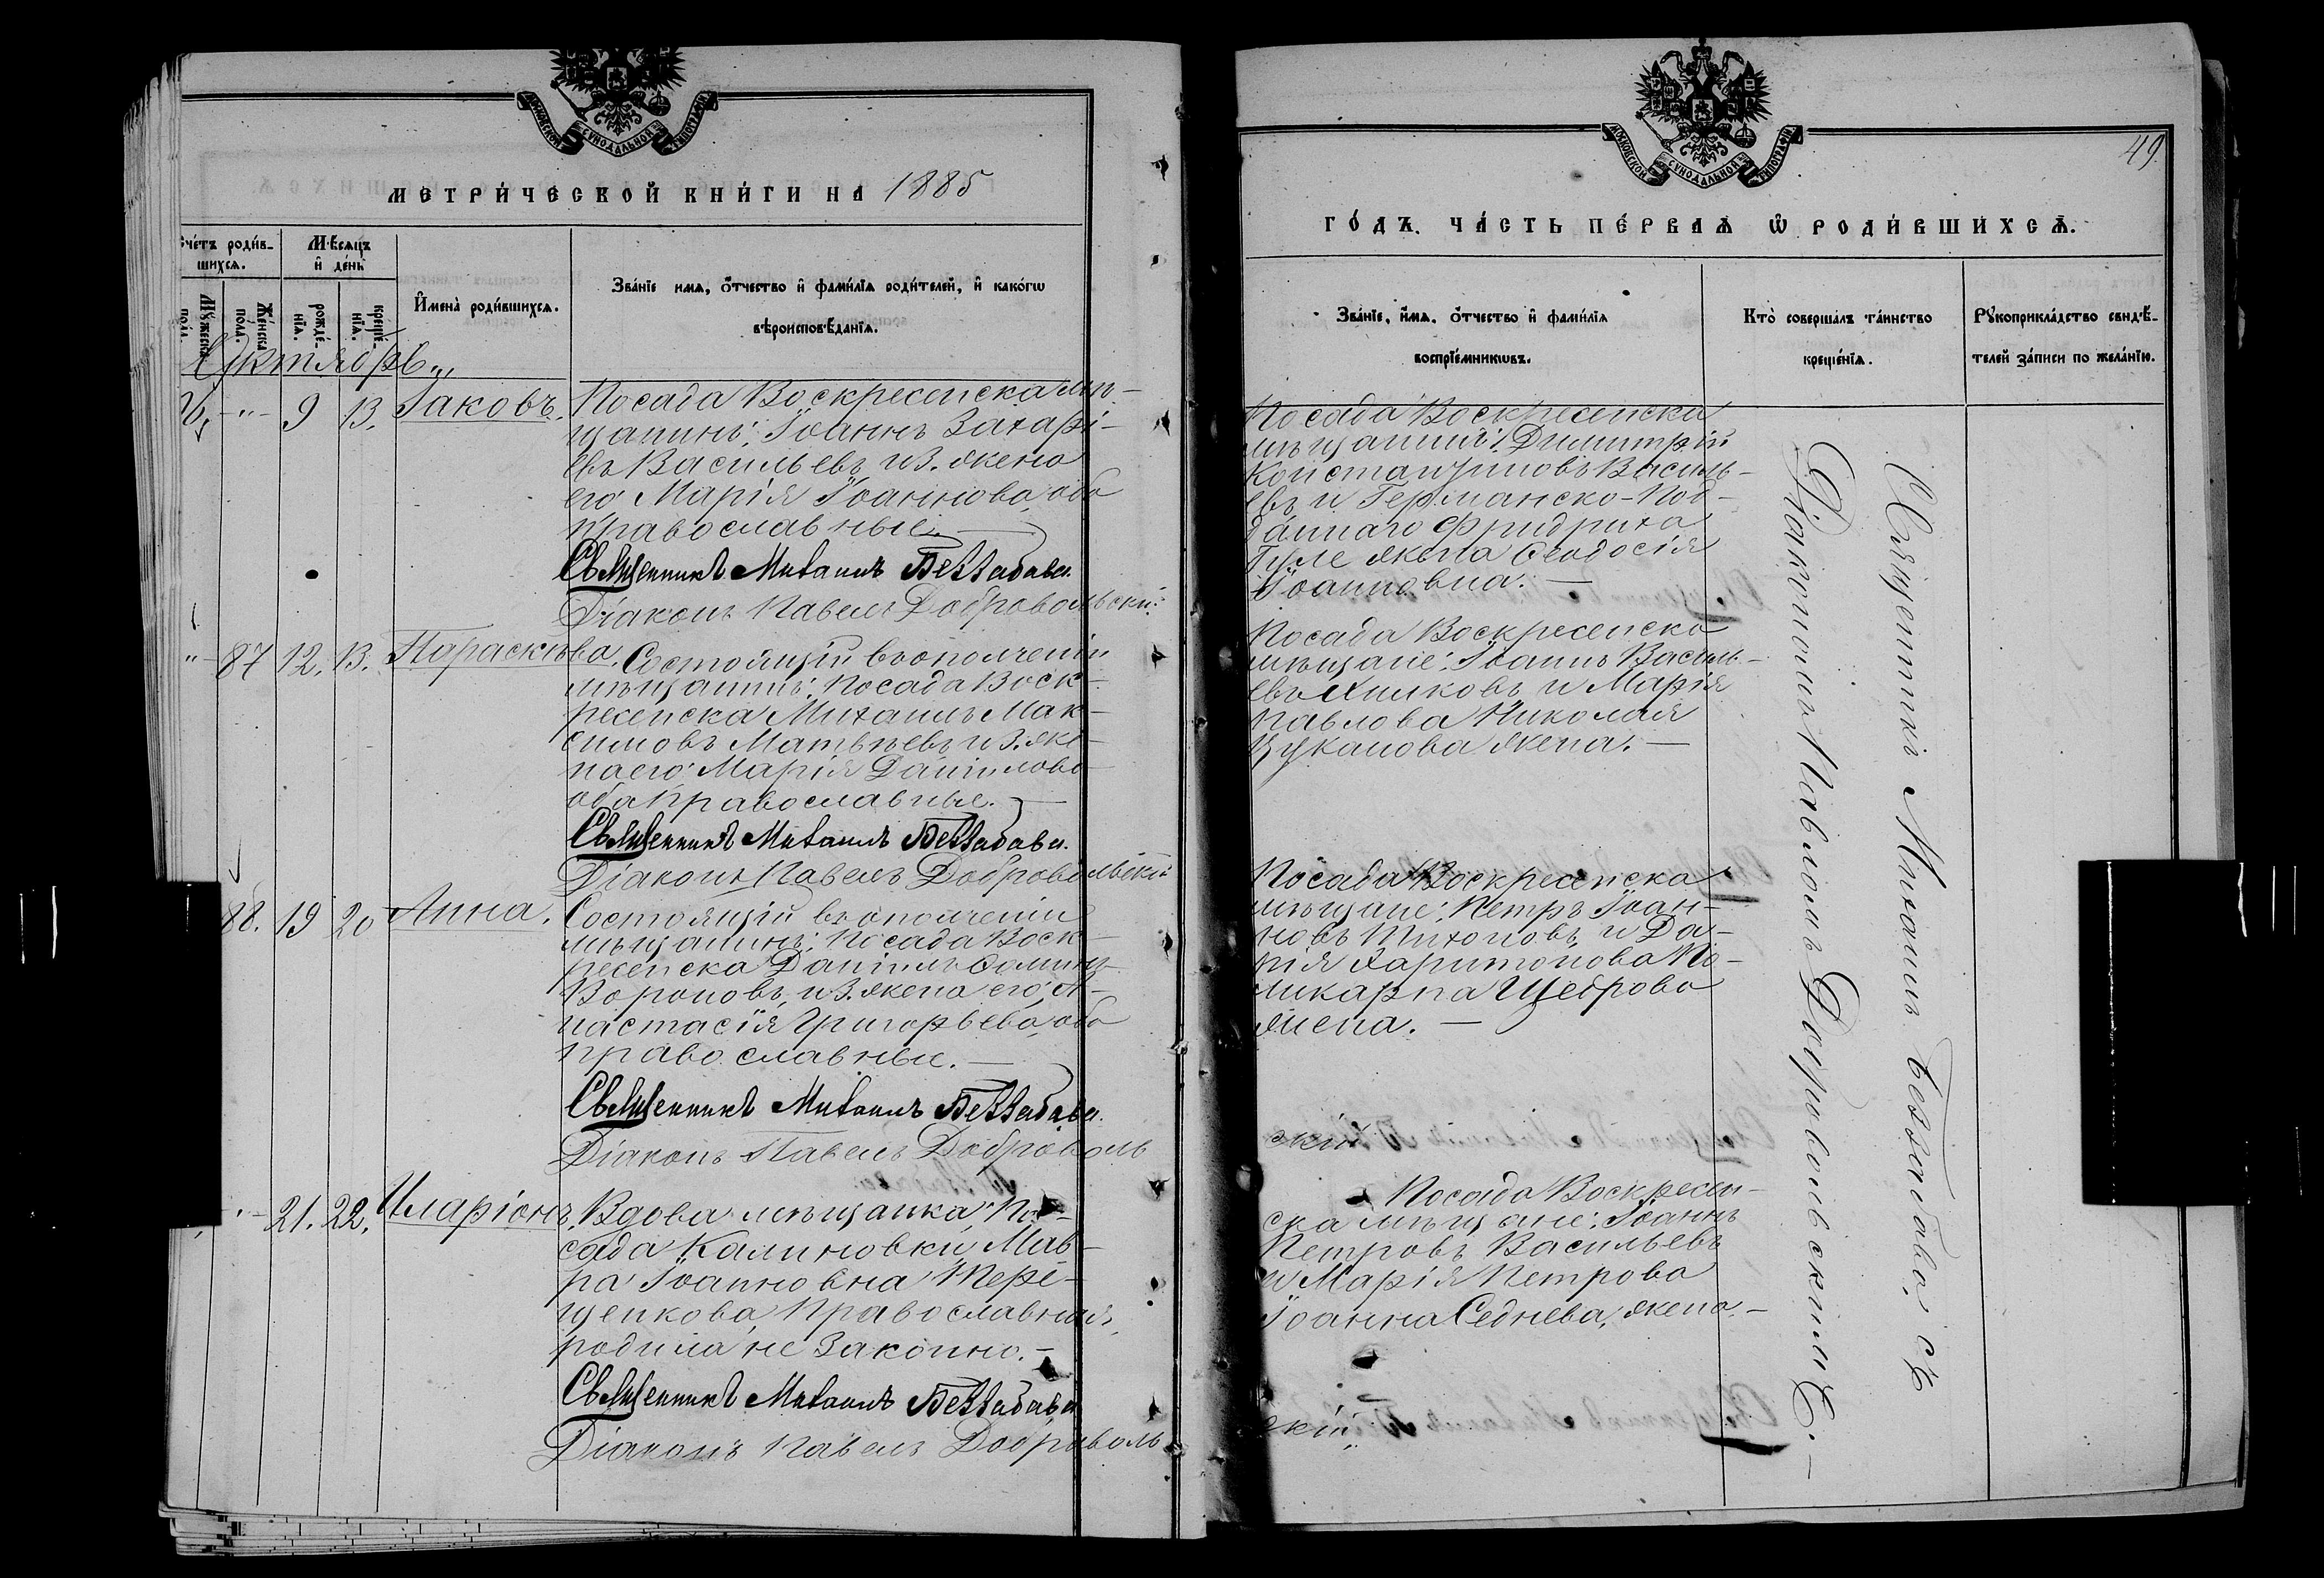 МОСКОВСКОЙ СУНОДАЛЬНОЙ ТИПОГРАФІИ
МЕТРИ́ЧЕСКОЙ КНИ́ГИ НА 1885
Сче́тъ роди́в-
шихся.
Мѣ́сяцъ
и де́нь
Му́жеска
по́ла.
Же́нска
по́ла.
рожде́-
нія.
креще́-
нія.
Имена̀ роди́вшихся.
Зва́ніе имя, о́тчество и фами́лія роди́телей, и како́гѡ
вѣроисповѣ́данія.
Октябрь
"
9
13.
Іаковъ.
Посада Воскресенска мѣ-
щанинъ: Іоаннъ Захарі-
евъ Васильевъ и з. жена
его Марія Іоаннова, оба
православные.
Священникъ Михаилъ Беззабава.
Діаконъ Павелъ Добровольскій.
"
87
12.
13.
Параскѣва.
Состоящій въ ополченіи
мѣщанинъ: Посада Воск-
ресенска Михаилъ Мак-
симовъ Матвѣевъ и з. же-
на его Марія Даніилова
оба православные.
Священникъ Михаилъ Беззабава.
Діаконъ Павелъ Добровольскій
88.
19
20
Анна.
Состоящій въ ополченіи
мѣщанинъ: Посада Воск-
ресенска Даніилъ Фоминъ
Вороновъ, и з. жена его А-
настасія Григорьева, оба
православные.
Священникъ Михаилъ Беззабава.
Діаконъ Павелъ Доброволь
"
21.
22.
Иларіонъ.
Вдова мѣщанка, По-
сада Калиновки, Мав-
ра Іоанновна Тере-
щенкова, православная,
родила не законно.
Священникъ Михаилъ Беззабава
Діаконъ Павелъ Доброволь
МОСКОВСКОЙ СУНОДАЛЬНОЙ ТИПОГРАФІИ
49.
ГО́ДЪ. ЧА́СТЬ ПЕ́РВАЯ Ѡ РОДИ́ВШИХСЯ.
Зва́ніе, и́мя, о́тчество и фами́лія
воспріе́мникѡвъ.
Кто̀ соверша́лъ та́инство
креще́нія.
Рукоприкла́дство свидѣ́-
телей за́писи по жела́нію.
Посада Воскресенска
мѣщанинъ: Димитрій
Константиновъ Василь-
евъ и Германско-Под-
даннаго Фридриха
Гуле жена Феодосія
Іоанновна.
Посада Воскресенска
мѣщане: Іоаннъ Василь-
евъ Ашиковъ и Марія
Павлова Николая
Цуканова жена.
Посада Воскресенска
мѣщане: Петръ Іоан-
новъ Тихоновъ, и Да-
рія Харитонова По-
ликарпа Щеброва
жена.
скій
Посада Воскресен-
ска мѣщане: Іоаннъ
Петровъ Васильевъ
и Марія Петрова
Іоанна Седнева, жена.
скій
Священникъ Михаилъ Беззабава, съ
Діакономъ Павломъ Добровольскимъ.